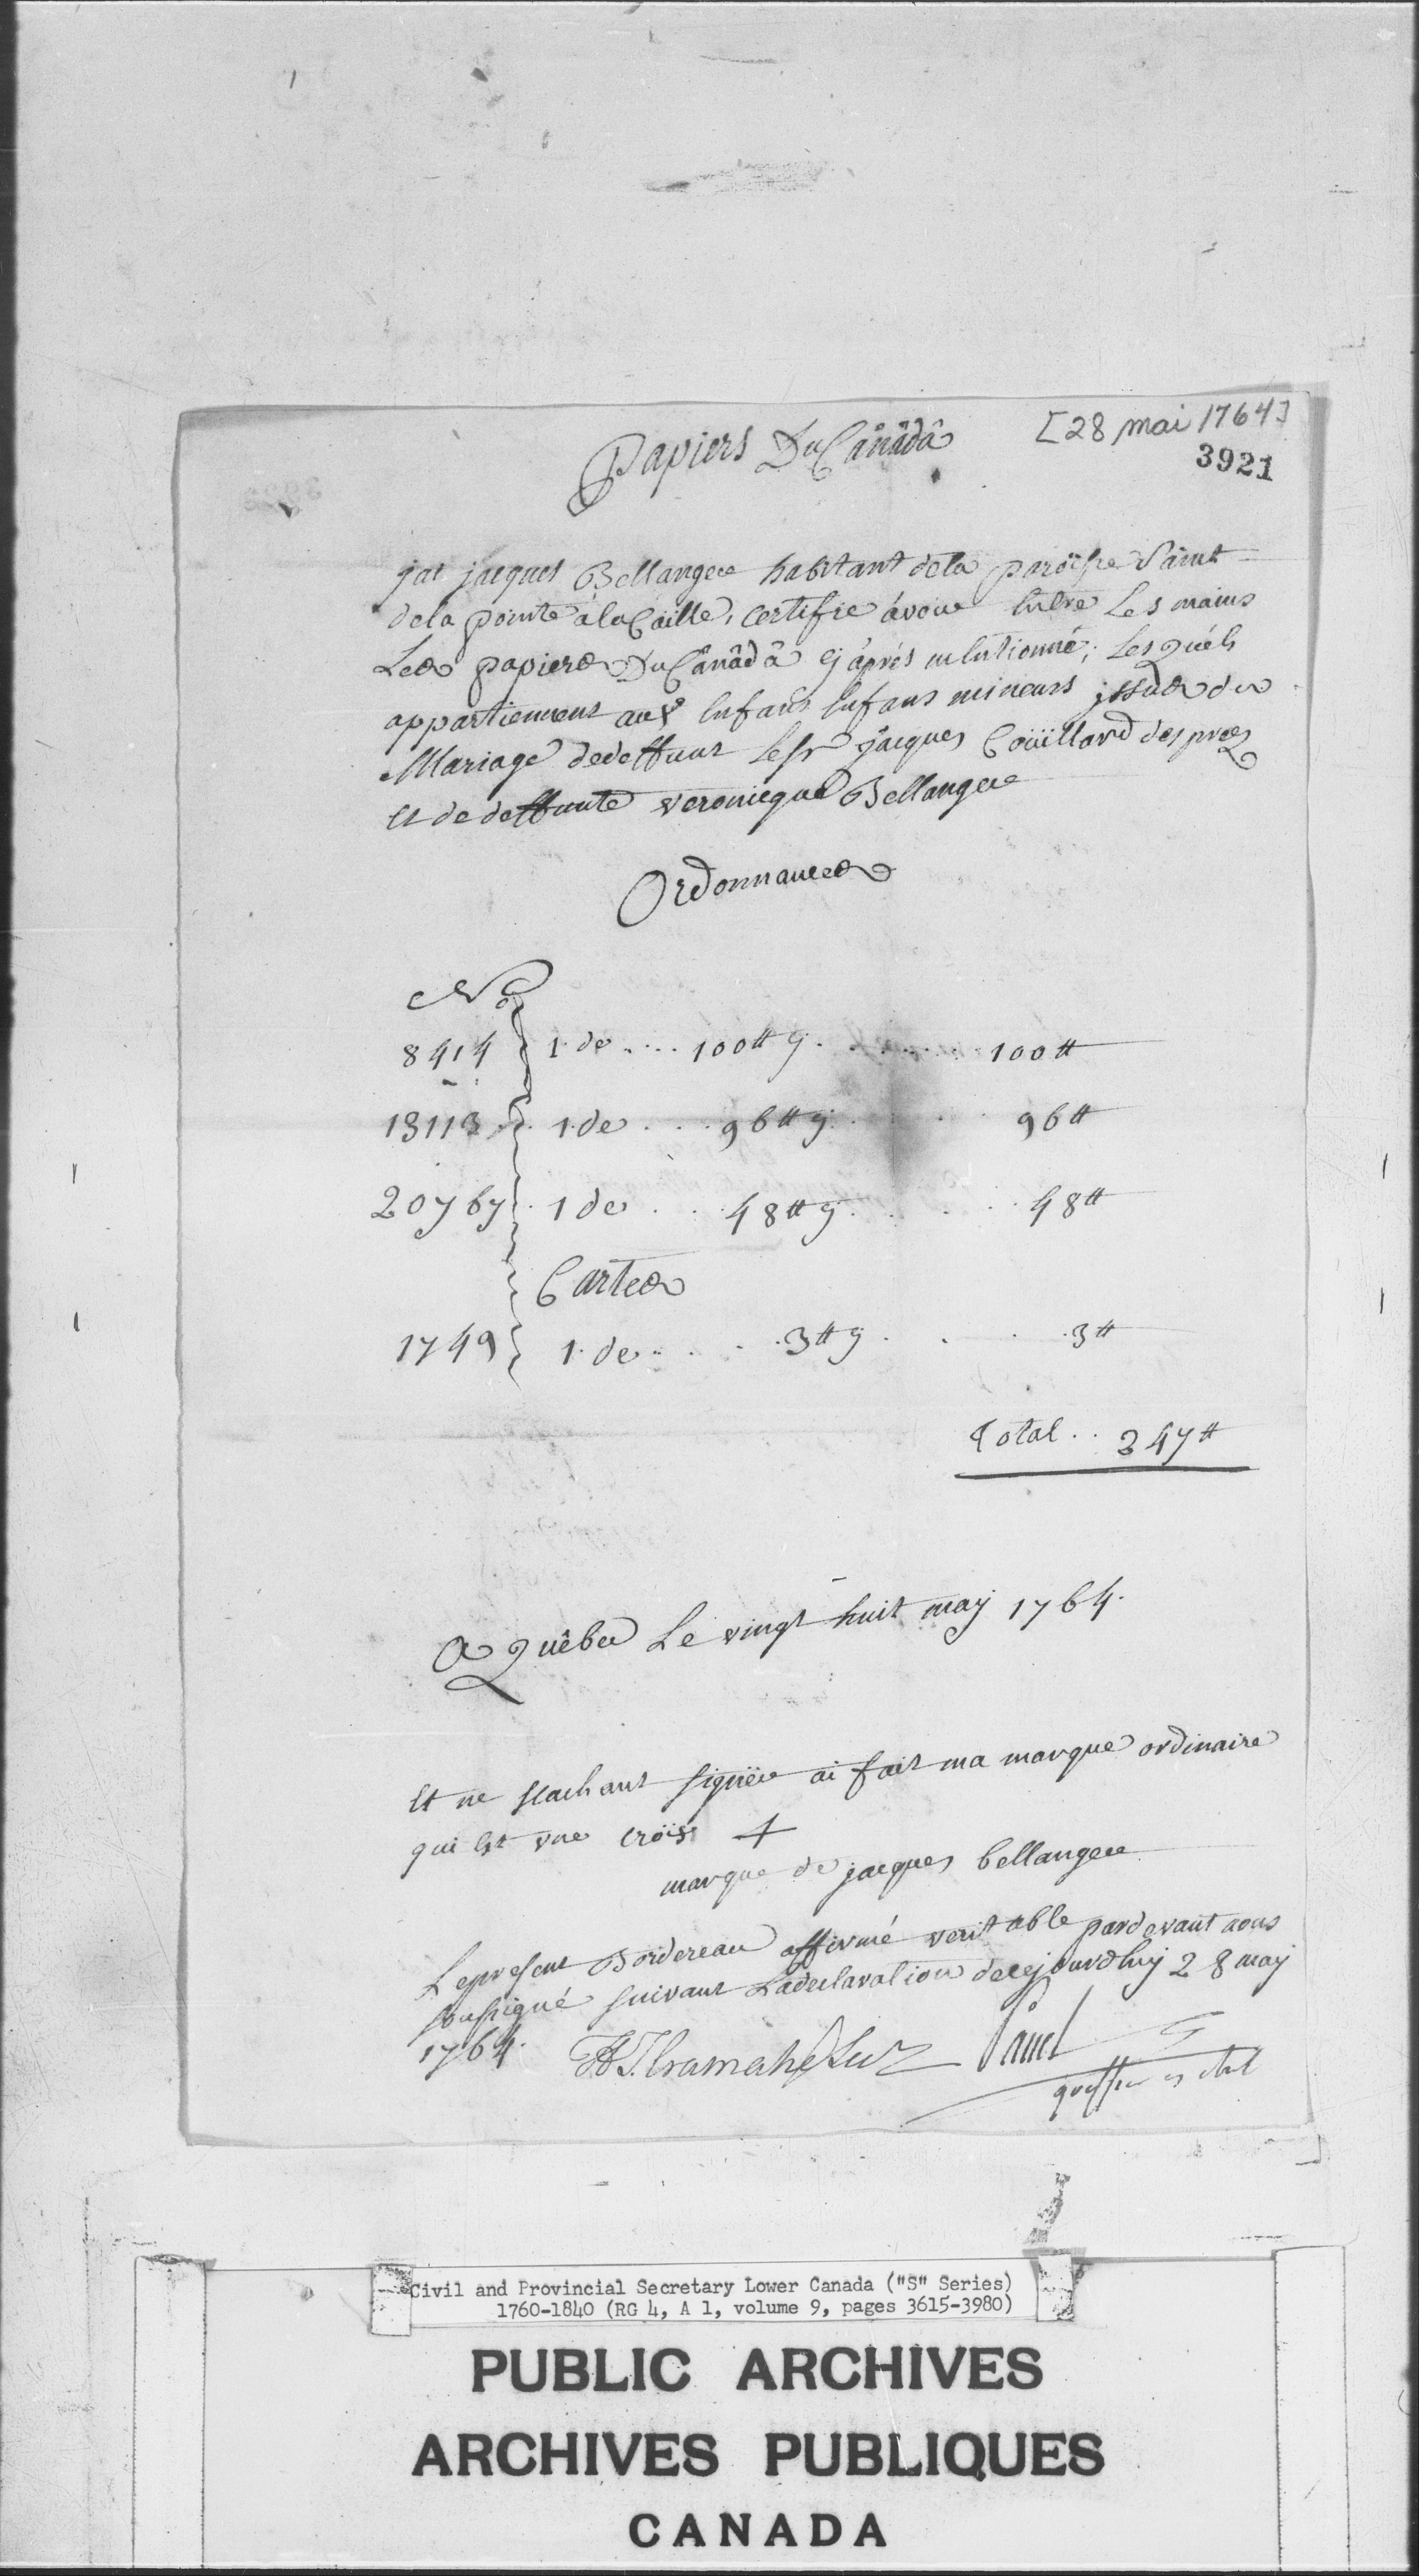 Papiers Du Cânâdâ
[28 mai 1764]
3921
jai jacques Bellangee habitant dela paroisse Saint
dela pointe àla Caille, certifie avoir Entre Les mains
Les papiers Du Cânâdâ cy après mentionné; Les quéls
appartiennent aux Enfans Enfans mineurs issus du
Mariage dedeffunt Lesr jacques Couillard desprez
Et de deffunte veronicque Bellangee
Ordonnances
No
8414 1 de .... 100⁠tt cy ........ 100tt
13113 1 de ... 96tt cy ...... 96tt
20767 1 de ... 48tt cy ...... 48tt
Cartes
1749 1 de .... 3tt cy .... 3tt
Total .. 247tt
A Quêbec Le vingt huit may 1764.
Et ne scachant signée ai fait ma marque ordinaire
qui Est vne croix +
marque de jacques bellangee
Lepresent Bordereau affirmé veritable pardevant nous
sousigné suivant Ladeclaration decejourdhuy 28 may
1764. H T. Cramahé Panet
greffier
Civil and Provincial Secretary Lower Canada ("S" Series)
1760-1840 (RG 4, A 1, volume 9, pages 3615-3980)
PUBLIC ARCHIVES
ARCHIVES PUBLIQUES
CANADA